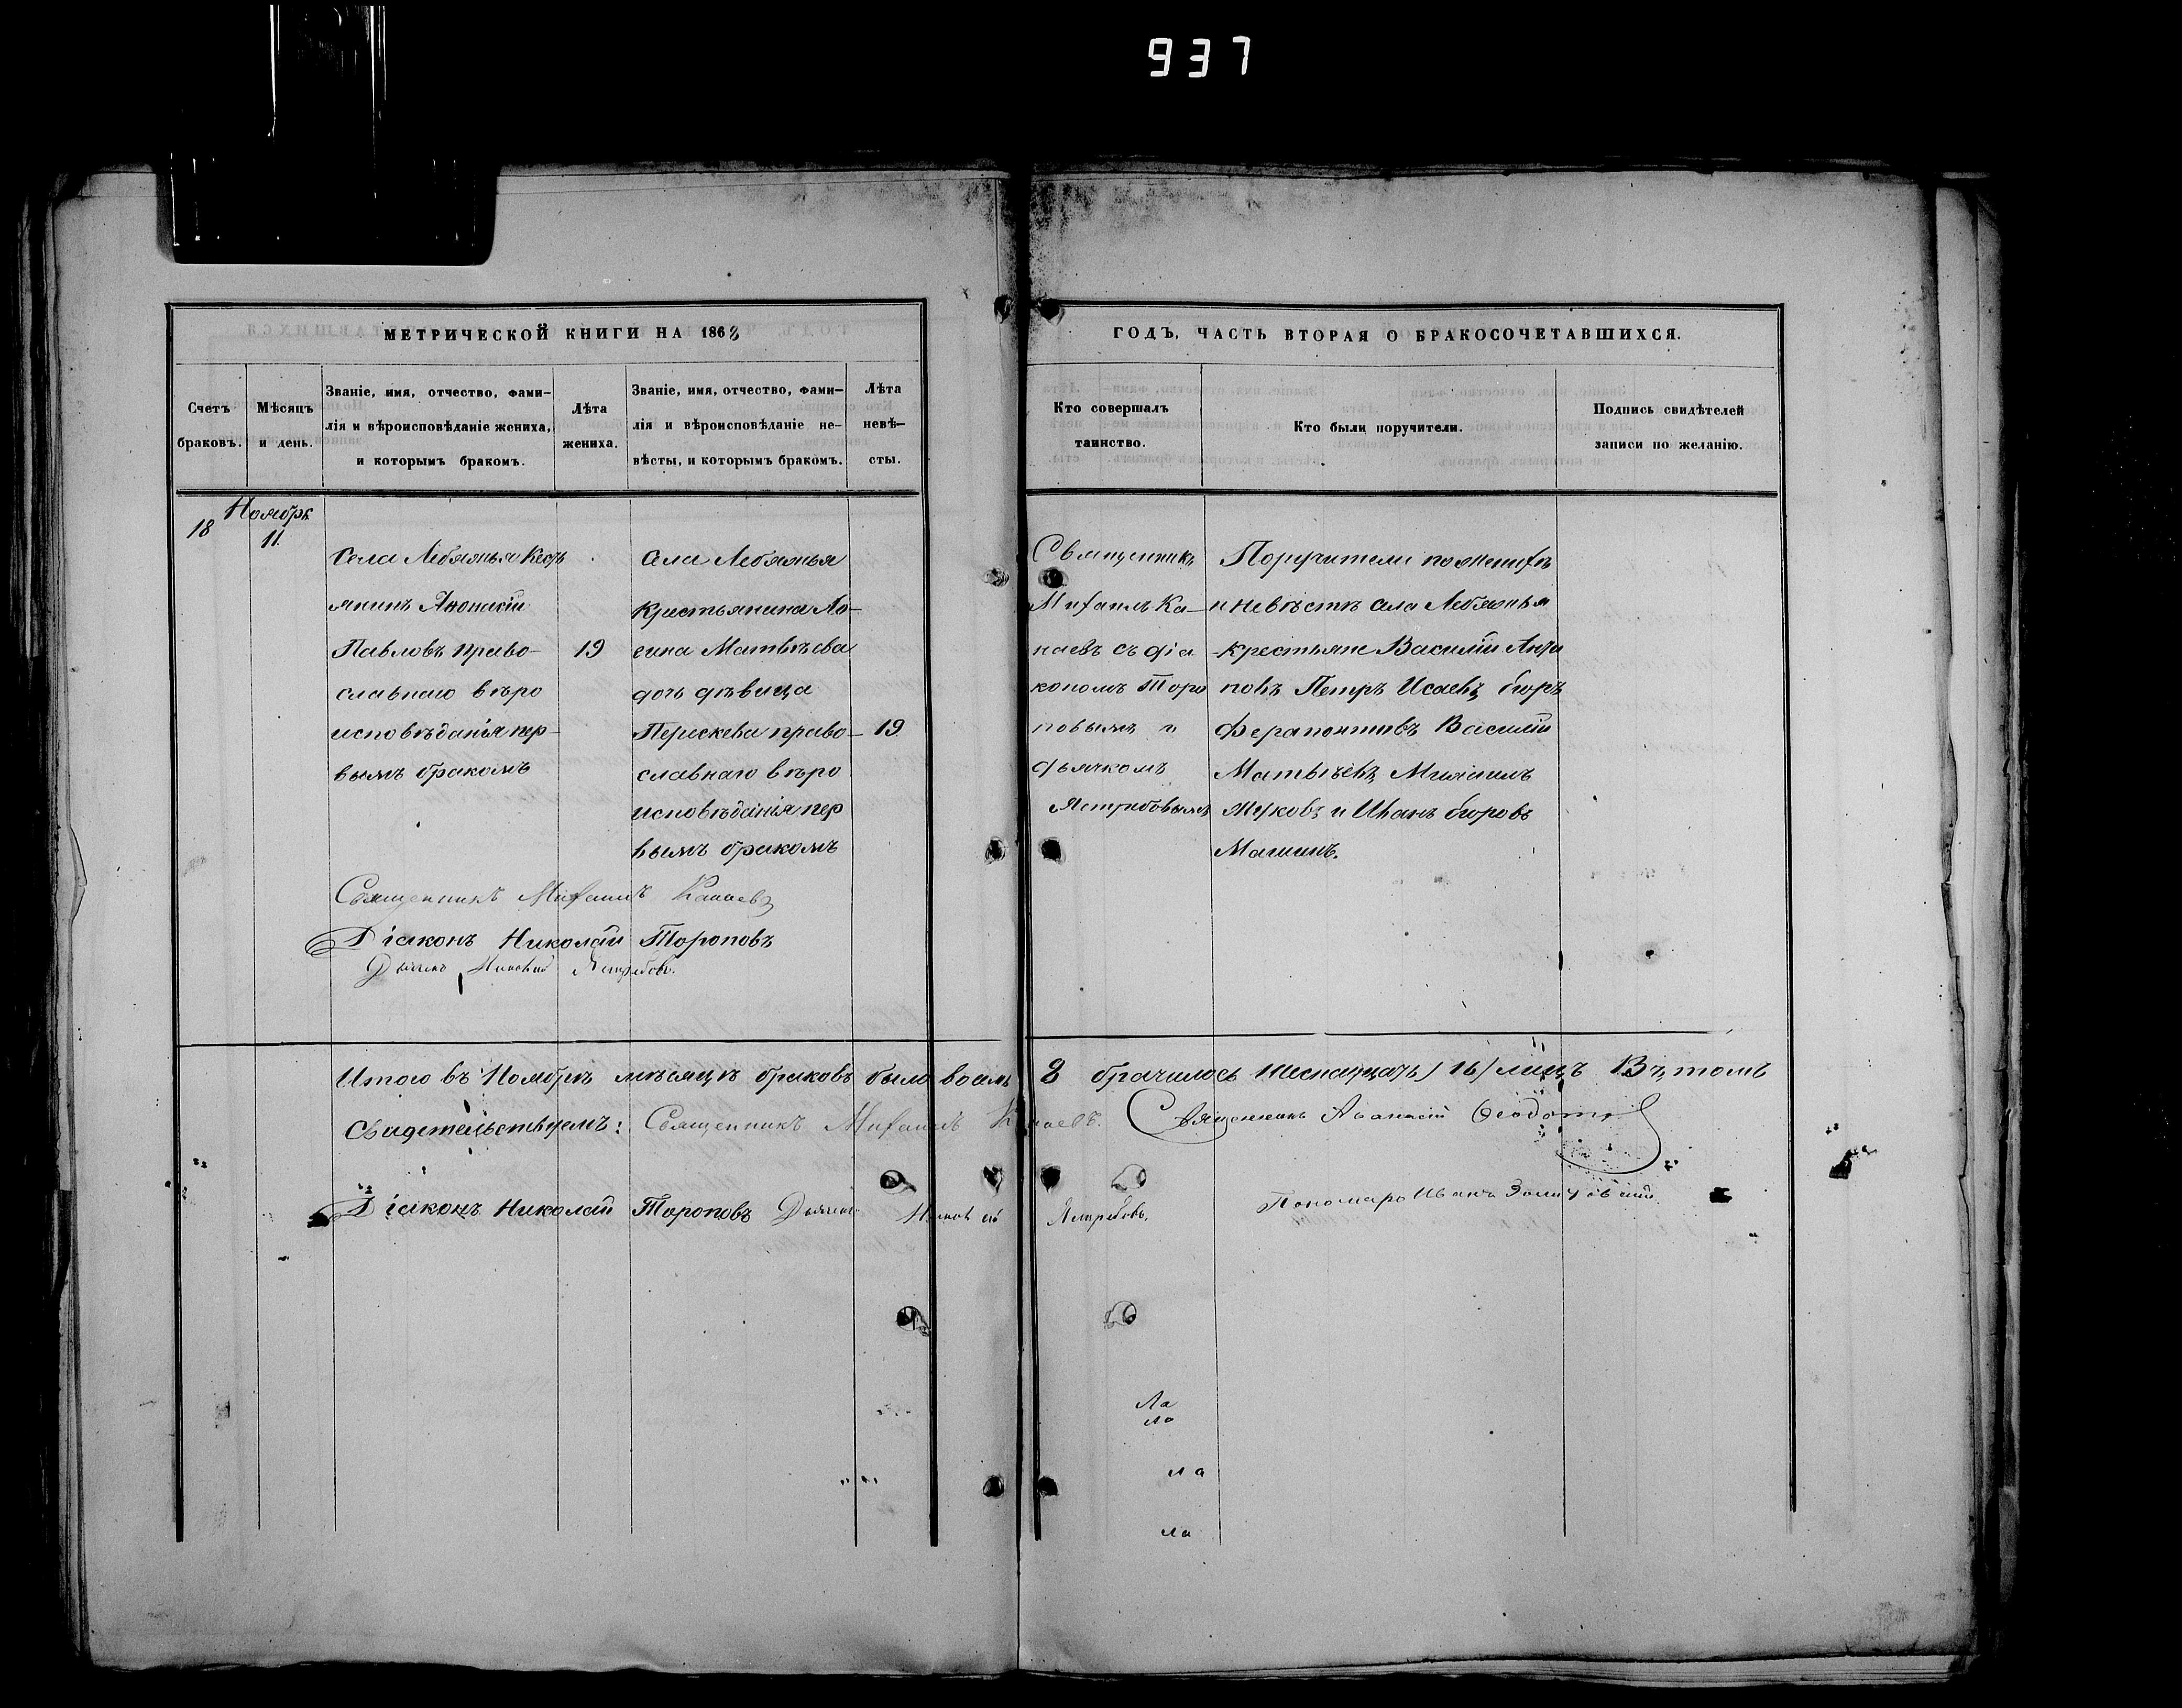 937
МЕТРИЧЕСКОЙ КНИГИ НА 1868
ГОДЪ, ЧАСТЬ ВТОРАЯ О БРАКОСОЧЕТАВШИХСЯ.
Счетъ браковъ.
Мѣсяцъ и день.
Званіе, имя, отчество, фами-
лія и вѣроисповѣданіе жениха,
и которымъ бракомъ.
Лѣта жениха.
Званіе, имя, отчество, фами-
лія и вѣроисповѣданіе не-
вѣсты, и которымъ бракомъ.
Лѣта невѣ-
сты.
Кто совершалъ
таинство.
Кто были поручители.
Подпись свидѣтелей
записи по желанію.
18
Ноябрь
11.
Села Лебяжья
янинъ
Павловъ право-
славнаго вѣро
исповѣданія пер-
вымъ бракомъ
19
села Лебяжья
Крестьянина
Матвѣева
дочь дѣвица
право-
славнаго вѣро
исповѣданія пер
вымъ бракомъ
19
Священникъ
Михаилъ Ка-
наевъ съ діа
кономъ Торо
повымъ и
дьячкомъ
Ястребовымъ
Поручители по женихѣ
и невѣстѣ села Лебяжья
крестьяне Василій
Петръ Исаевъ
Ферапонтовъ Василій
Матвѣевъ Михаилъ
Жуковъ и Иванъ
Священникъ Михаилъ Канаевъ
Діаконъ Николай Тороповъ
Дьячекъ Ястребовъ.
Итого въ Ноябрѣ мѣсяцѣ браковъ было восмь 8 брачилось шеснатцать (16) лицъ Въ томъ
Свидетельствуемъ: Священникъ Михаилъ Канаевъ. Священникъ Аѳанасій
Діаконъ Николай Тороповъ Дьячекъ Ястребовъ. Пономарь Иванъ
Ла
ла
ла
ла